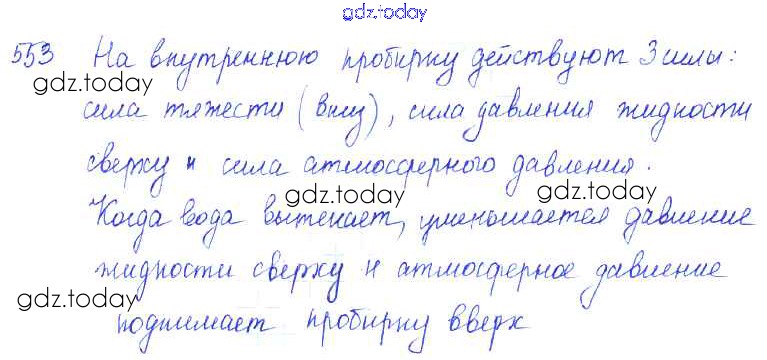 gdz.today
553 На внутреннюю пробирку действуют 3 силы:
gdz.today
сила тяжести (вниз), сила давления жидкости
сверху и сила атмосферного давления.
gdz.today gdz.today
Когда вода вытекает, уменьшается давление
жидкости сверху и атмосферное давление
gdz.today
поднимает пробирку вверх